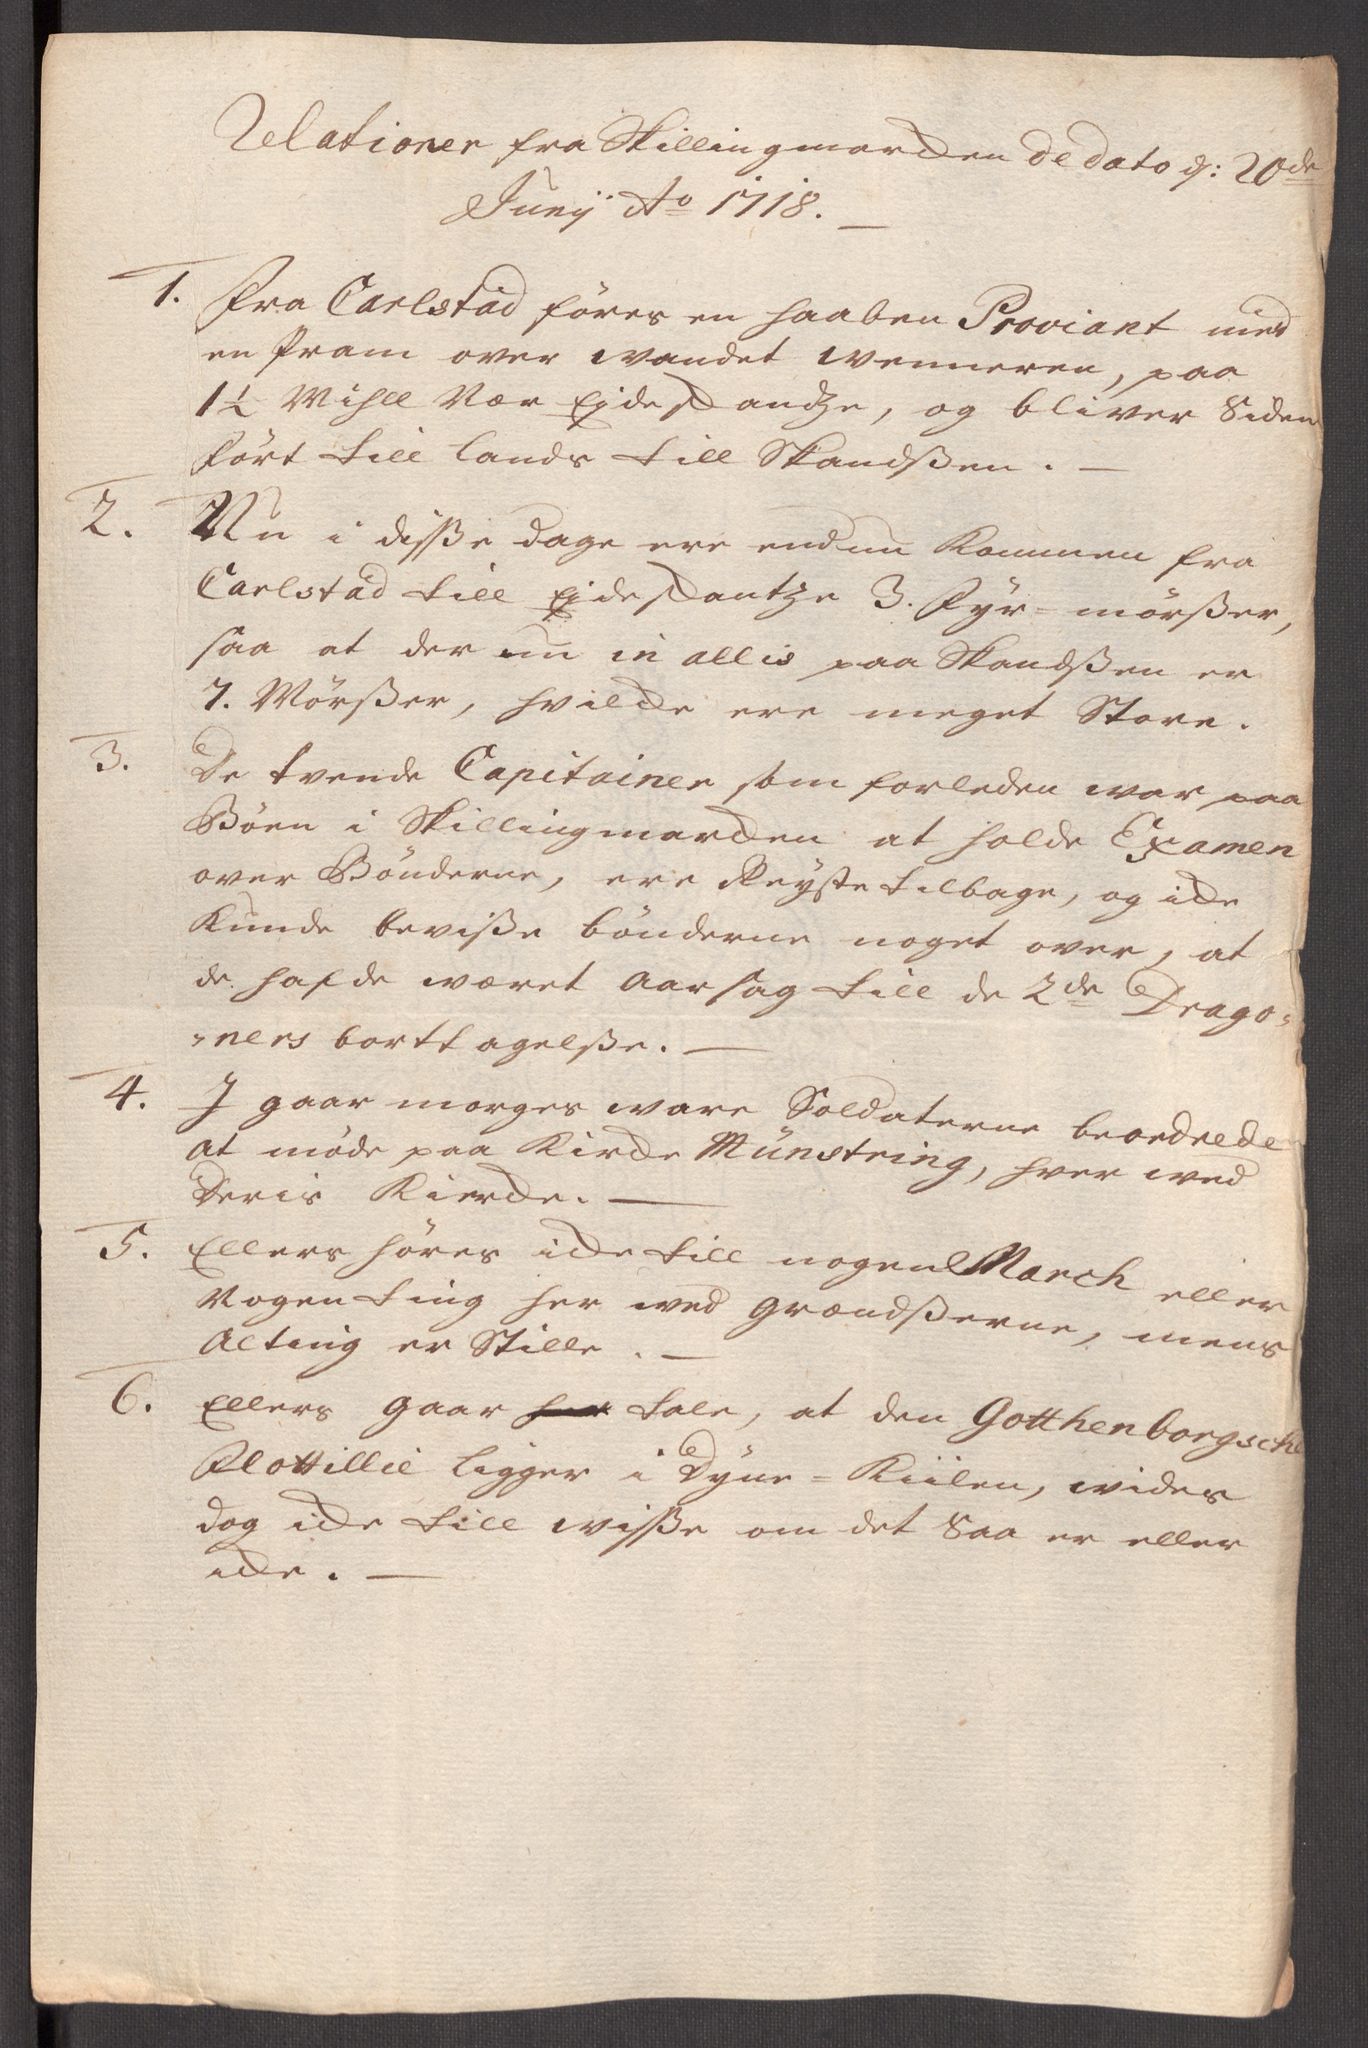 Relationer fra Skillingmarcken de dato d: 20de
Junij Ao 1718.
1. Fra Carlstad föres en haaben Proviant med
en Pram over wandet Wenneren, paa
1½ Mihll Nær Ejdeskandtze, og bliver Siden
fört till lands till Skandsßen.
2. Nu i disße dage ere endnu Kommen fra
Carlstad till Ejdeskantze 3. Fÿr-mörßer,
saa at der nu in allis paa Skandsßen er
7. Mörßer, hvilcke ere meget Store.
3. De tvende Capitainer som forleden war paa
Böen i Skillingmarcken at holde Examen
over Bönderne, ere Reÿste tilbage, og icke
Kunde beviße bönderne noget over, at
de hafde wæret Aarsag till de 2de Drago-
-ners borttagelße.
4. I gaar morges ware Soldaterne beordrede
at möde paa Kircke Münstring, hver wed
Deris Kiercke.
5. Ellers höres icke till nogen March eller
Nogen ting her wed Grændsßerne, mens
Alting er Stille.
6. Ellers gaar her tale, at den Gotthenborgsche
Flottillie ligger i Dyne-Kiilen, wides
dog icke till wisße om det Saa er eller
icke.